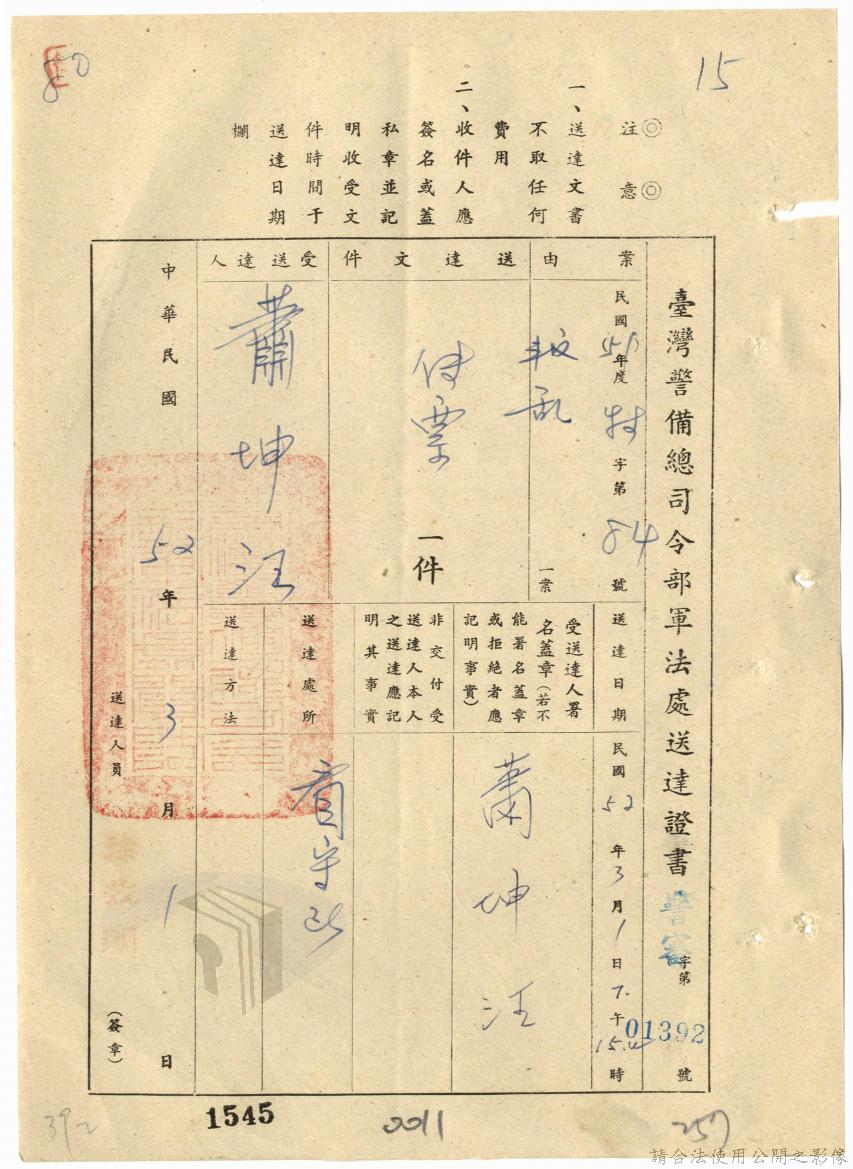 15
◎注意◎
一、送達文書
不取任何
費用
二、收件人應
簽名或蓋
私章並記
明收受文
件時間于
送達日期
欄
臺灣警備總司令部軍法處送達證書 警審字第01392號
案由
民國(51)年度 特字第84號
叛乱 一案
送達文件
傳票 一件
受送達人
蕭坤汪
送達日期
民國52年3月1日下午15.4時
受送達人署
名蓋章(若不
能署名蓋章
或拒絕者應
記明事實)
蕭坤汪
非交付受
送達人本人
之送達應記
明其事實
送達處所
看守所
送達方法
中華民國52年3月1日
送達人員
(簽章)
392
1545
0011
257
請合法使用公開之影像